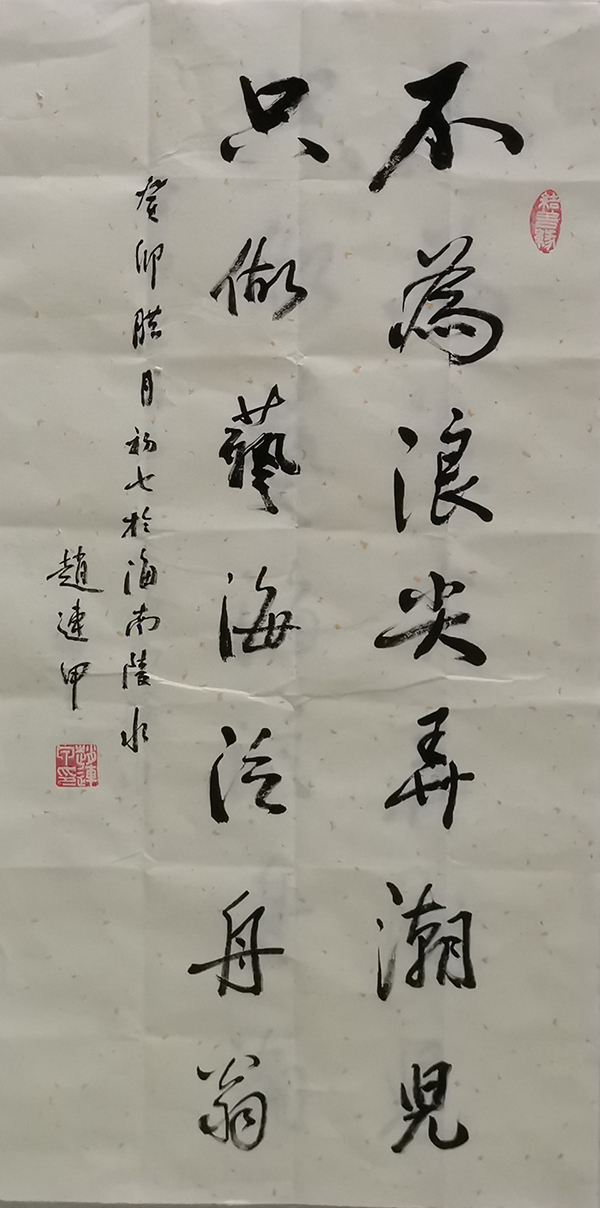 不為浪尖弄潮児
只做藝海泛舟翁
癸卯臘月初七於海南陵水
趙連甲